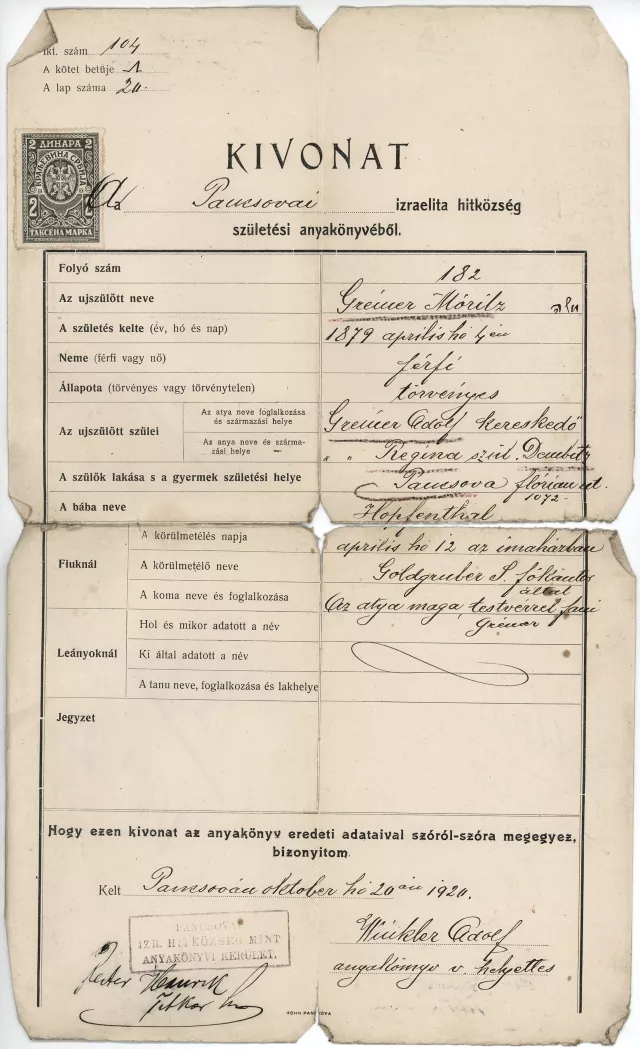 Ikt. szám 104
A kötet betüje A
A lap száma 20.
2 ДИНАРА 2
КРАЉЕВИНА СРБИЈА
2 2
ТАКСЕНА МАРКА
KIVONAT
A Pancsovai izraelita hitközség
születési anyakönyvéből.
Folyó szám 182
Az ujszülött neve Greiner Móritz משה
A születés kelte (év, hó és nap) 1879 április hó 5én
Neme (férfi vagy nő) férfi
Állapota (törvényes vagy törvénytelen) törvényes
Az ujszülött szülei
Az atya neve foglalkozása és származási helye Greiner Adolf kereskedő
Az anya neve és származási helye " " Regina szül. Dembitz
A szülők lakása s a gyermek születési helye Pancsova flórian ut. 1072.
A bába neve Hopfenthal
Fiuknál
A körülmetélés napja április hó 12 az imaházban
A körülmetélő neve Goldgruber S. főkántor által
A koma neve és foglalkozása Az atya maga, testvérrel Greiner
Leányoknál
Hol és mikor adatott a név
Ki által adatott a név
A tanu neve, foglalkozása és lakhelye
Jegyzet
Hogy ezen kivonat az anyakönyv eredeti adataival szóról-szóra megegyez,
bizonyitom.
Kelt Pancsován oktober hó 20 án 1920.
PANCSOVAI
IZR. HITKÖZSÉG MINT
ANYAKÖNYVI KERÜLET.
Winkler Adolf
anyakönyv v. helyettes
Henrik
titkár
KOHN PANCSOVA